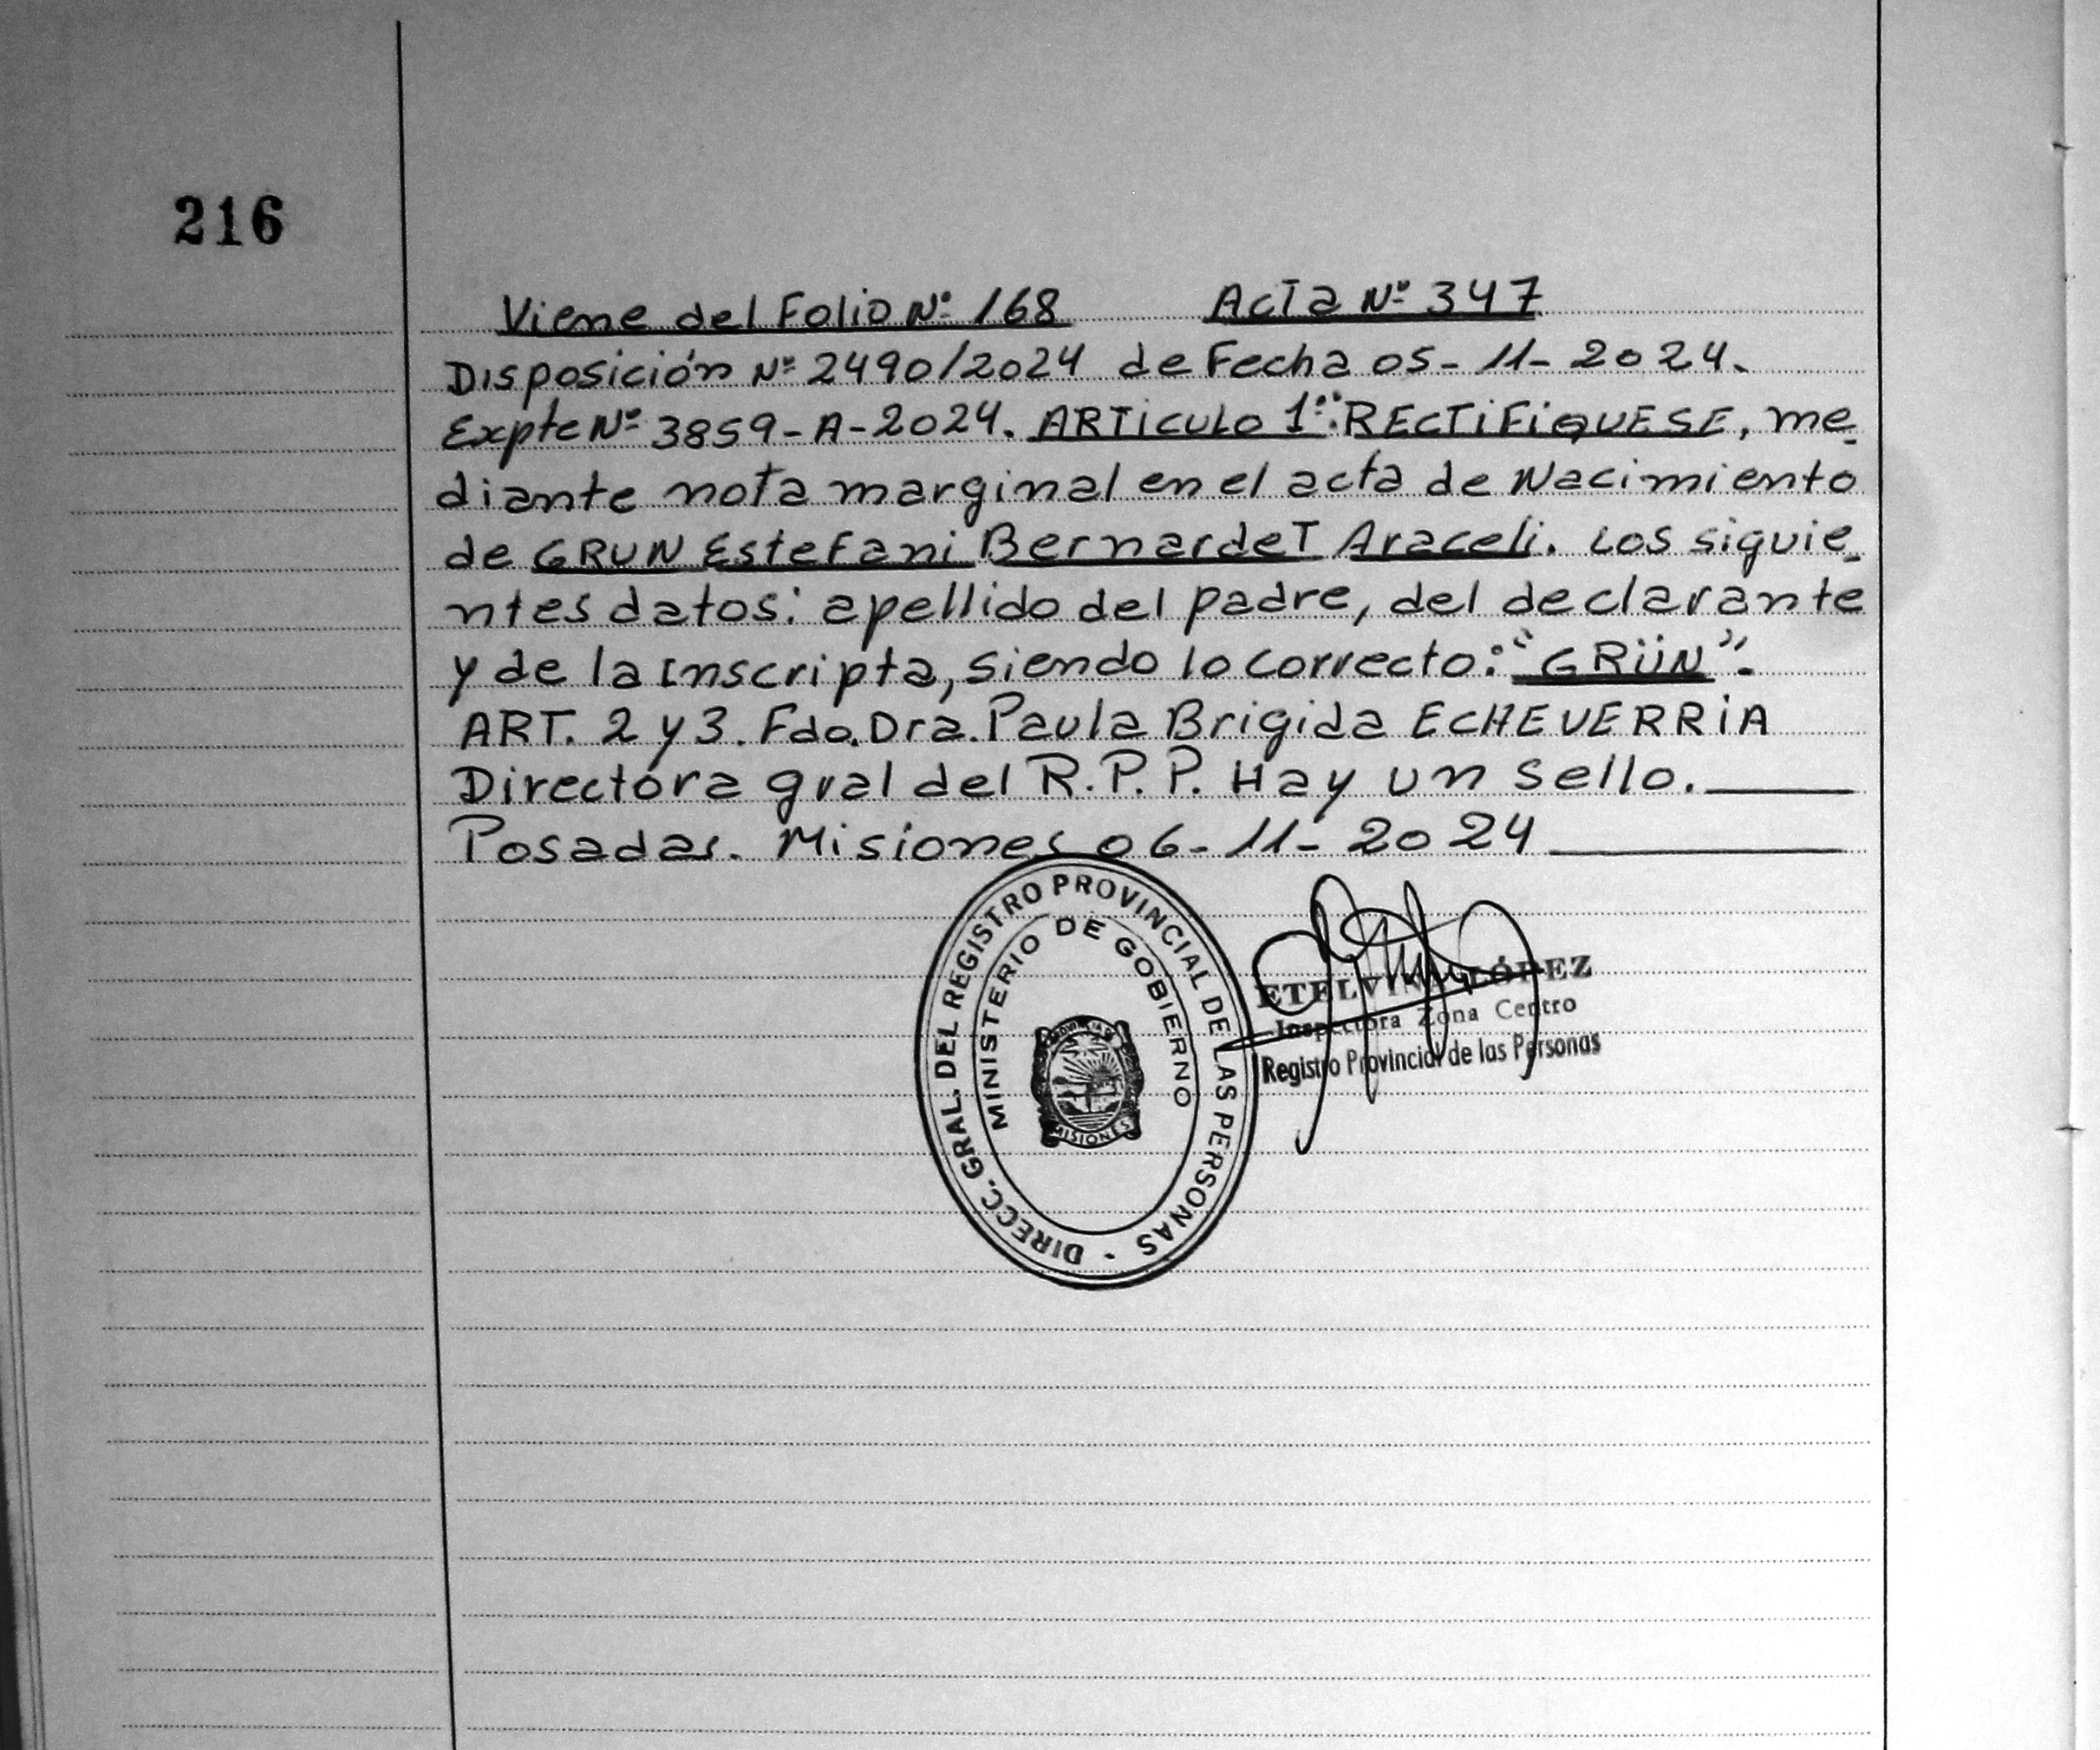 216
Viene del Folio Nº 168 Acta Nº 347
Disposición Nº 2490/2024 de Fecha 05-11-2024.
Expte Nº 3859-A-2024. ARTiCULO 1º: RECTiFiQUESE, me-
diante nota marginal en el acta de Nacimiento
de GRUN Estefani Bernardet Araceli. Los siguie-
ntes datos: apellido del padre, del declarante
y de la inscripta, siendo lo correcto: "GRÜN".
ART. 2 y 3. Fdo. Dra. Paula Brigida ECHEVERRiA
Directora gral del R.P.P. Hay un sello.
Posadas. Misiones 06-11-2024
DIRECC. GRAL. DEL REGISTRO PROVINCIAL DE LAS PERSONAS -
MINISTERIO DE GOBIERNO
PROVINCIA DE
MISIONES
ETELVINA LÓPEZ
Inspectora Zona Centro
Registro Provincial de las Personas